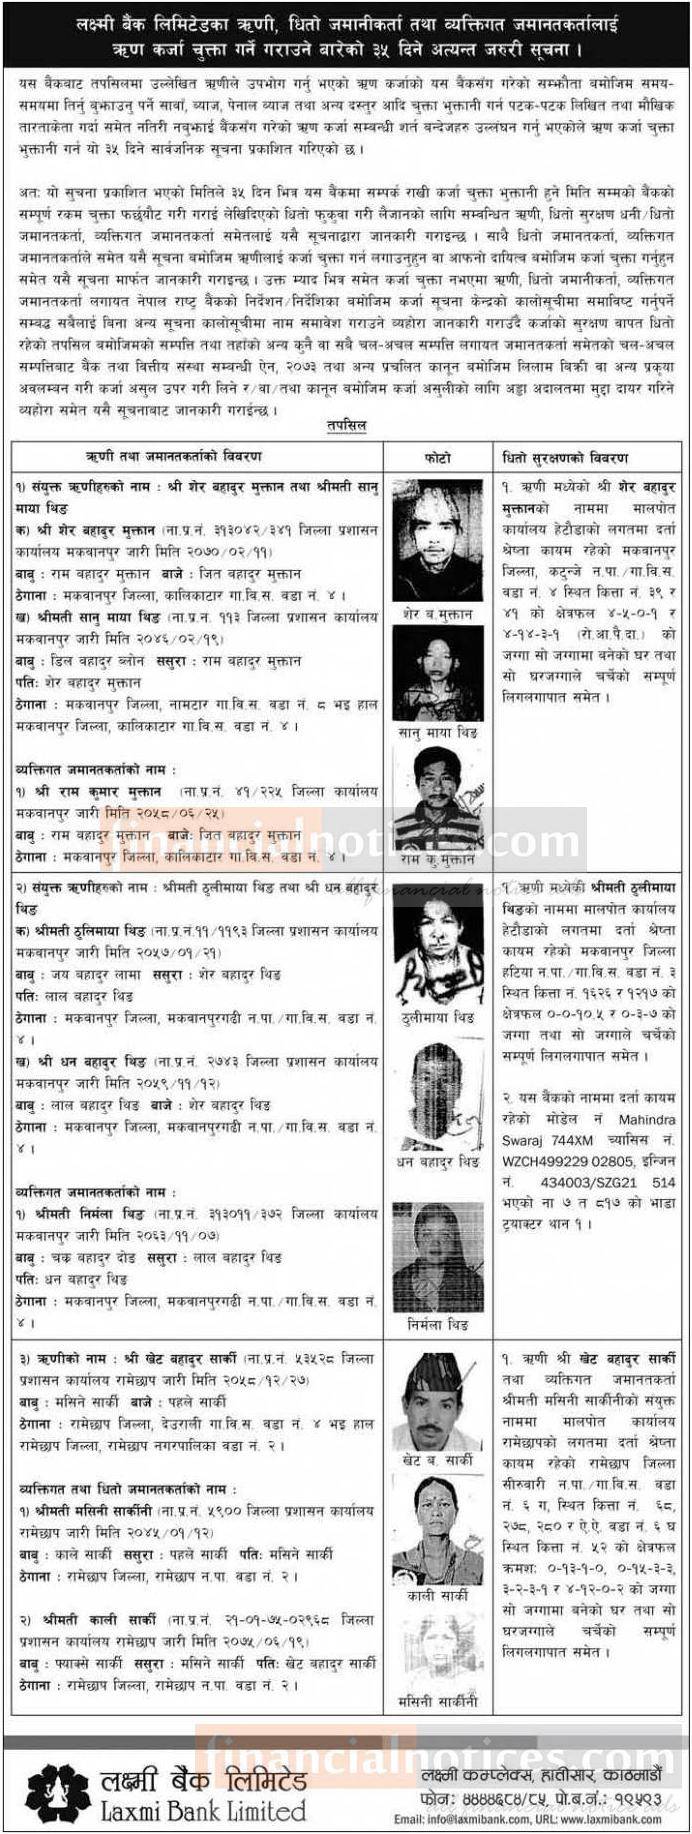 लक्ष्मी बैंक लिमिटेडका ऋणी, धितो जमानीकर्ता तथा व्यक्तिगत जमानतकर्तालाई
ऋण कर्जा चुक्ता गर्ने गराउने बारेको ३५ दिने अत्यन्त जरुरी सूचना ।
यस बैंकबाट तपसिलमा उल्लेखित ऋणीले उपभोग गर्नु भएको ऋण कर्जाको यस बैंकसंग गरेको सम्झौता बमोजिम समय-
समयमा तिर्नु बुझाउनु पर्ने सावाँ, व्याज, पेनाल व्याज तथा अन्य दस्तुर आदि चुक्ता भुक्तानी गर्न पटक-पटक लिखित तथा मौखिक
तारताकेता गर्दा समेत नतिरी नबुझाई बैंकसंग गरेको ऋण कर्जा सम्बन्धी शर्त बन्देजहरु उल्लंघन गर्नु भएकोले ऋण कर्जा चुक्ता
भुक्तानी गर्न यो ३५ दिने सार्वजनिक सूचना प्रकाशित गरिएको छ ।
अतः यो सुचना प्रकाशित भएको मितिले ३५ दिन भित्र यस बैंकमा सम्पर्क राखी कर्जा चुक्ता भुक्तानी हुने मिति सम्मको बैंकको
सम्पूर्ण रकम चुक्ता फर्छ्यौट गरी गराई लेखिदिएको धितो फुकुवा गरी लैजानको लागि सम्बन्धित ऋणी, धितो सुरक्षण धनी/धितो
जमानतकर्ता, व्यक्तिगत जमानतकर्ता समेतलाई यसै सूचनाद्वारा जानकारी गराइन्छ । साथै धितो जमानतकर्ता, व्यक्तिगत
जमानतकर्ताले समेत यसै सूचना बमोजिम ऋणीलाई कर्जा चुक्ता गर्न लगाउनुहुन वा आफनो दायित्व बमोजिम कर्जा चुक्ता गर्नुहुन
समेत यसै सूचना मार्फत जानकारी गराइन्छ । उक्त म्याद भित्र समेत कर्जा चुक्ता नभएमा ऋणी, धितो जमानीकर्ता, व्यक्तिगत
जमानतकर्ता लगायत नेपाल राष्ट्र बैंकको निर्देशन/निर्देशिका बमोजिम कर्जा सूचना केन्द्रको कालोसूचीमा समाविष्ट गर्नुपर्ने
सम्बद्ध सबैलाई बिना अन्य सूचना कालोसूचीमा नाम समावेश गराउने व्यहोरा जानकारी गराउँदै कर्जाको सुरक्षण वापत धितो
रहेको तपसिल बमोजिमको सम्पत्ति तथा तहाँको अन्य कुनै वा सबै चल-अचल सम्पत्ति लगायत जमानतकर्ता समेतको चल-अचल
सम्पत्तिबाट बैंक तथा वित्तीय संस्था सम्बन्धी ऐन, २०७३ तथा अन्य प्रचलित कानून बमोजिम लिलाम बिक्री वा अन्य प्रकृया
अवलम्बन गरी कर्जा असुल उपर गरी लिने र/वा/तथा कानून बमोजिम कर्जा असुलीको लागि अड्डा अदालतमा मुद्दा दायर गरिने
व्यहोरा समेत यसै सूचनाबाट जानकारी गराईन्छ ।
तपसिल
ऋणी तथा जमानतकर्ताको विवरण
फोटो
धितो सुरक्षणको विवरण
१) संयुक्त ऋणीहरुको नाम : श्री शेर बहादुर मुक्तान तथा श्रीमती सानु
माया थिङ
क) श्री शेर बहादुर मुक्तान (ना.प्र.नं. ३१३०४२/३४१ जिल्ला प्रशासन
कार्यालय मकवानपुर जारी मिति २०७०/०२/११)
बाबु : राम बहादुर मुक्तान बाजे : जित बहादुर मुक्तान
ठेगाना : मकवानपुर जिल्ला, कालिकाटार गा.वि.स. वडा नं. ४ ।
ख) श्रीमती सानु माया थिङ (ना.प्र.नं. ११३ जिल्ला प्रशासन कार्यालय
मकवानपुर जारी मिति २०४६/०२/१९)
बाबु : डिल बहादुर ब्लोन ससुरा : राम बहादुर मुक्तान
पतिः शेर बहादुर मुक्तान
ठेगाना : मकवानपुर जिल्ला, नामटार गा.वि.स. वडा नं. ८ भइ हाल
मकवानपुर जिल्ला, कालिकाटार गा.वि.स. वडा नं. ४ ।
व्यक्तिगत जमानतकर्ताको नाम :
१) श्री राम कुमार मुक्तान (ना.प्र.नं. ४१/२२५ जिल्ला कार्यालय
मकवानपुर जारी मिति २०५८/०६/२५)
बाबु : राम बहादुर मुक्तान बाजेः जित बहादुर मुक्तान
ठेगाना : मकवानपुर जिल्ला, कालिकाटार गा.वि.स. वडा नं. ४ ।
शेर ब.मुक्तान
सानु माया थिङ
राम कु.मुक्तान
१. ऋणी मध्येको श्री शेर बहादुर
मुक्तानको नाममा मालपोत
कार्यालय हेटौडाको लगतमा दर्ता
श्रेष्ता कायम रहेको मकवानपुर
जिल्ला, कटुन्जे न.पा./गा.वि.स.
वडा नं. ४ स्थित कित्ता नं. ३९ र
४१ को क्षेत्रफल ४-५-०-१ र
४-१४-३-१ (रो.आ.पै.दा.) को
जग्गा सो जग्गामा बनेको घर तथा
सो घरजग्गाले चर्चेको सम्पूर्ण
लिगलगापात समेत ।
financialnotices.com
all financial notices ads
२) संयुक्त ऋणीहरुको नाम : श्रीमती ठुलीमाया थिङ तथा श्री धन बहादुर
थिङ
क) श्रीमती ठुलिमाया थिङ (ना.प्र.नं.११/११९३ जिल्ला प्रशासन कार्यालय
मकवानपुर जारी मिति २०५७/०१/२१)
बाबु : जय बहादुर लामा ससुरा : शेर बहादुर थिङ
पतिः लाल बहादुर थिङ
ठेगाना : मकवानपुर जिल्ला, मकवानपुरगढी न.पा./गा.वि.स. वडा नं.
४ ।
ख) श्री धन बहादुर थिङ (ना.प्र.नं. २७४३ जिल्ला प्रशासन कार्यालय
मकवानपुर जारी मिति २०५९/११/१२)
बाबु : लाल बहादुर थिङ बाजे : शेर बहादुर थिङ
ठेगाना : मकवानपुर जिल्ला, मकवानपुरगढी न.पा./गा.वि.स. वडा नं.
४ ।
व्यक्तिगत जमानतकर्ताको नाम :
१) श्रीमती निर्मला थिङ (ना.प्र.नं. ३१३०११/३७२ जिल्ला कार्यालय
मकवानपुर जारी मिति २०६३/११/०७)
बाबु : चक्र बहादुर दोङ ससुरा : लाल बहादुर थिङ
पतिः धन बहादुर थिङ
ठेगाना : मकवानपुर जिल्ला, मकवानपुरगढी न.पा./गा.वि.स. वडा नं.
४ ।
ठुलीमाया थिङ
धन बहादुर थिङ
निर्मला थिङ
१. ऋणी मध्येकी श्रीमती ठुलीमाया
थिङको नाममा मालपोत कार्यालय
हेटौडाको लगतमा दर्ता श्रेष्ता
कायम रहेको मकवानपुर जिल्ला
हटिया न.पा./गा.वि.स. वडा नं. ३
स्थित कित्ता नं. १६२६ र १२१७ को
क्षेत्रफल ०-०-१०.५ र ०-३-७ को
जग्गा तथा सो जग्गाले चर्चेको
सम्पूर्ण लिगलगापात समेत ।
२. यस बैंकको नाममा दर्ता कायम
रहेको मोडेल नं Mahindra
Swaraj 744XM च्यासिस नं.
WZCH499229 02805, इन्जिन
नं. 434003/SZG21 514
भएको ना ७ त ८१७ को भाडा
ट्र्याक्टर थान १ ।
३) ऋणीको नाम : श्री खेट बहादुर सार्की (ना.प्र.नं. ५३५२८ जिल्ला
प्रशासन कार्यालय रामेछाप जारी मिति २०५८/१२/२७)
बाबु : मसिने सार्की बाजे : पहले सार्की
ठेगाना : रामेछाप जिल्ला, देउराली गा.वि.स. वडा नं. ४ भइ हाल
रामेछाप जिल्ला, रामेछाप नगरपालिका वडा नं. २ ।
व्यक्तिगत तथा धितो जमानतकर्ताको नाम :
१) श्रीमती मसिनी सार्कीनी (ना.प्र.नं. ५९०० जिल्ला प्रशासन कार्यालय
रामेछाप जारी मिति २०४५/०१/१२)
बाबु : काले सार्की ससुरा : पहले सार्की पतिः मसिने सार्की
ठेगाना : रामेछाप जिल्ला, रामेछाप न.पा. वडा नं. २ ।
२) श्रीमती काली सार्की (ना.प्र.नं. २१-०१-७५-०२९६८ जिल्ला
प्रशासन कार्यालय रामेछाप जारी मिति २०७५/०६/१९)
बाबु : फ्याक्से सार्की ससुरा : मसिने सार्की पतिः खेट बहादुर सार्की
ठेगाना : रामेछाप जिल्ला, रामेछाप न.पा. वडा नं. २ ।
खेट ब. सार्की
काली सार्की
मसिनी सार्कीनी
१. ऋणी श्री खेट बहादुर सार्की
तथा व्यक्तिगत जमानतकर्ता
श्रीमती मसिनी सार्कीनीको संयुक्त
नाममा मालपोत कार्यालय
रामेछापको लगतमा दर्ता श्रेष्ता
कायम रहेको रामेछाप जिल्ला
सीरुवारी न.पा./गा.वि.स. वडा
नं. ६ ग, स्थित कित्ता नं. ६८,
२७८, २८० र ऐ.ऐ. वडा नं. ६ घ
स्थित कित्ता नं. ५२ को क्षेत्रफल
क्रमशः ०-१३-१-०, ०-१५-३-३,
३-२-३-१ र ४-१२-०-२ को जग्गा
सो जग्गामा बनेको घर तथा सो
घरजग्गाले चर्चेको सम्पूर्ण
लिगलगापात समेत ।
financialnotices.com
all financial notices ads
लक्ष्मी बैंक लिमिटेड
Laxmi Bank Limited
लक्ष्मी कम्प्लेक्स, हात्तीसार, काठमाडौं
फोनः ४४४४६८४/८५, पो.ब.नं.: १९५९३
Email: info@laxmibank.com, URL: www.laxmibank.com